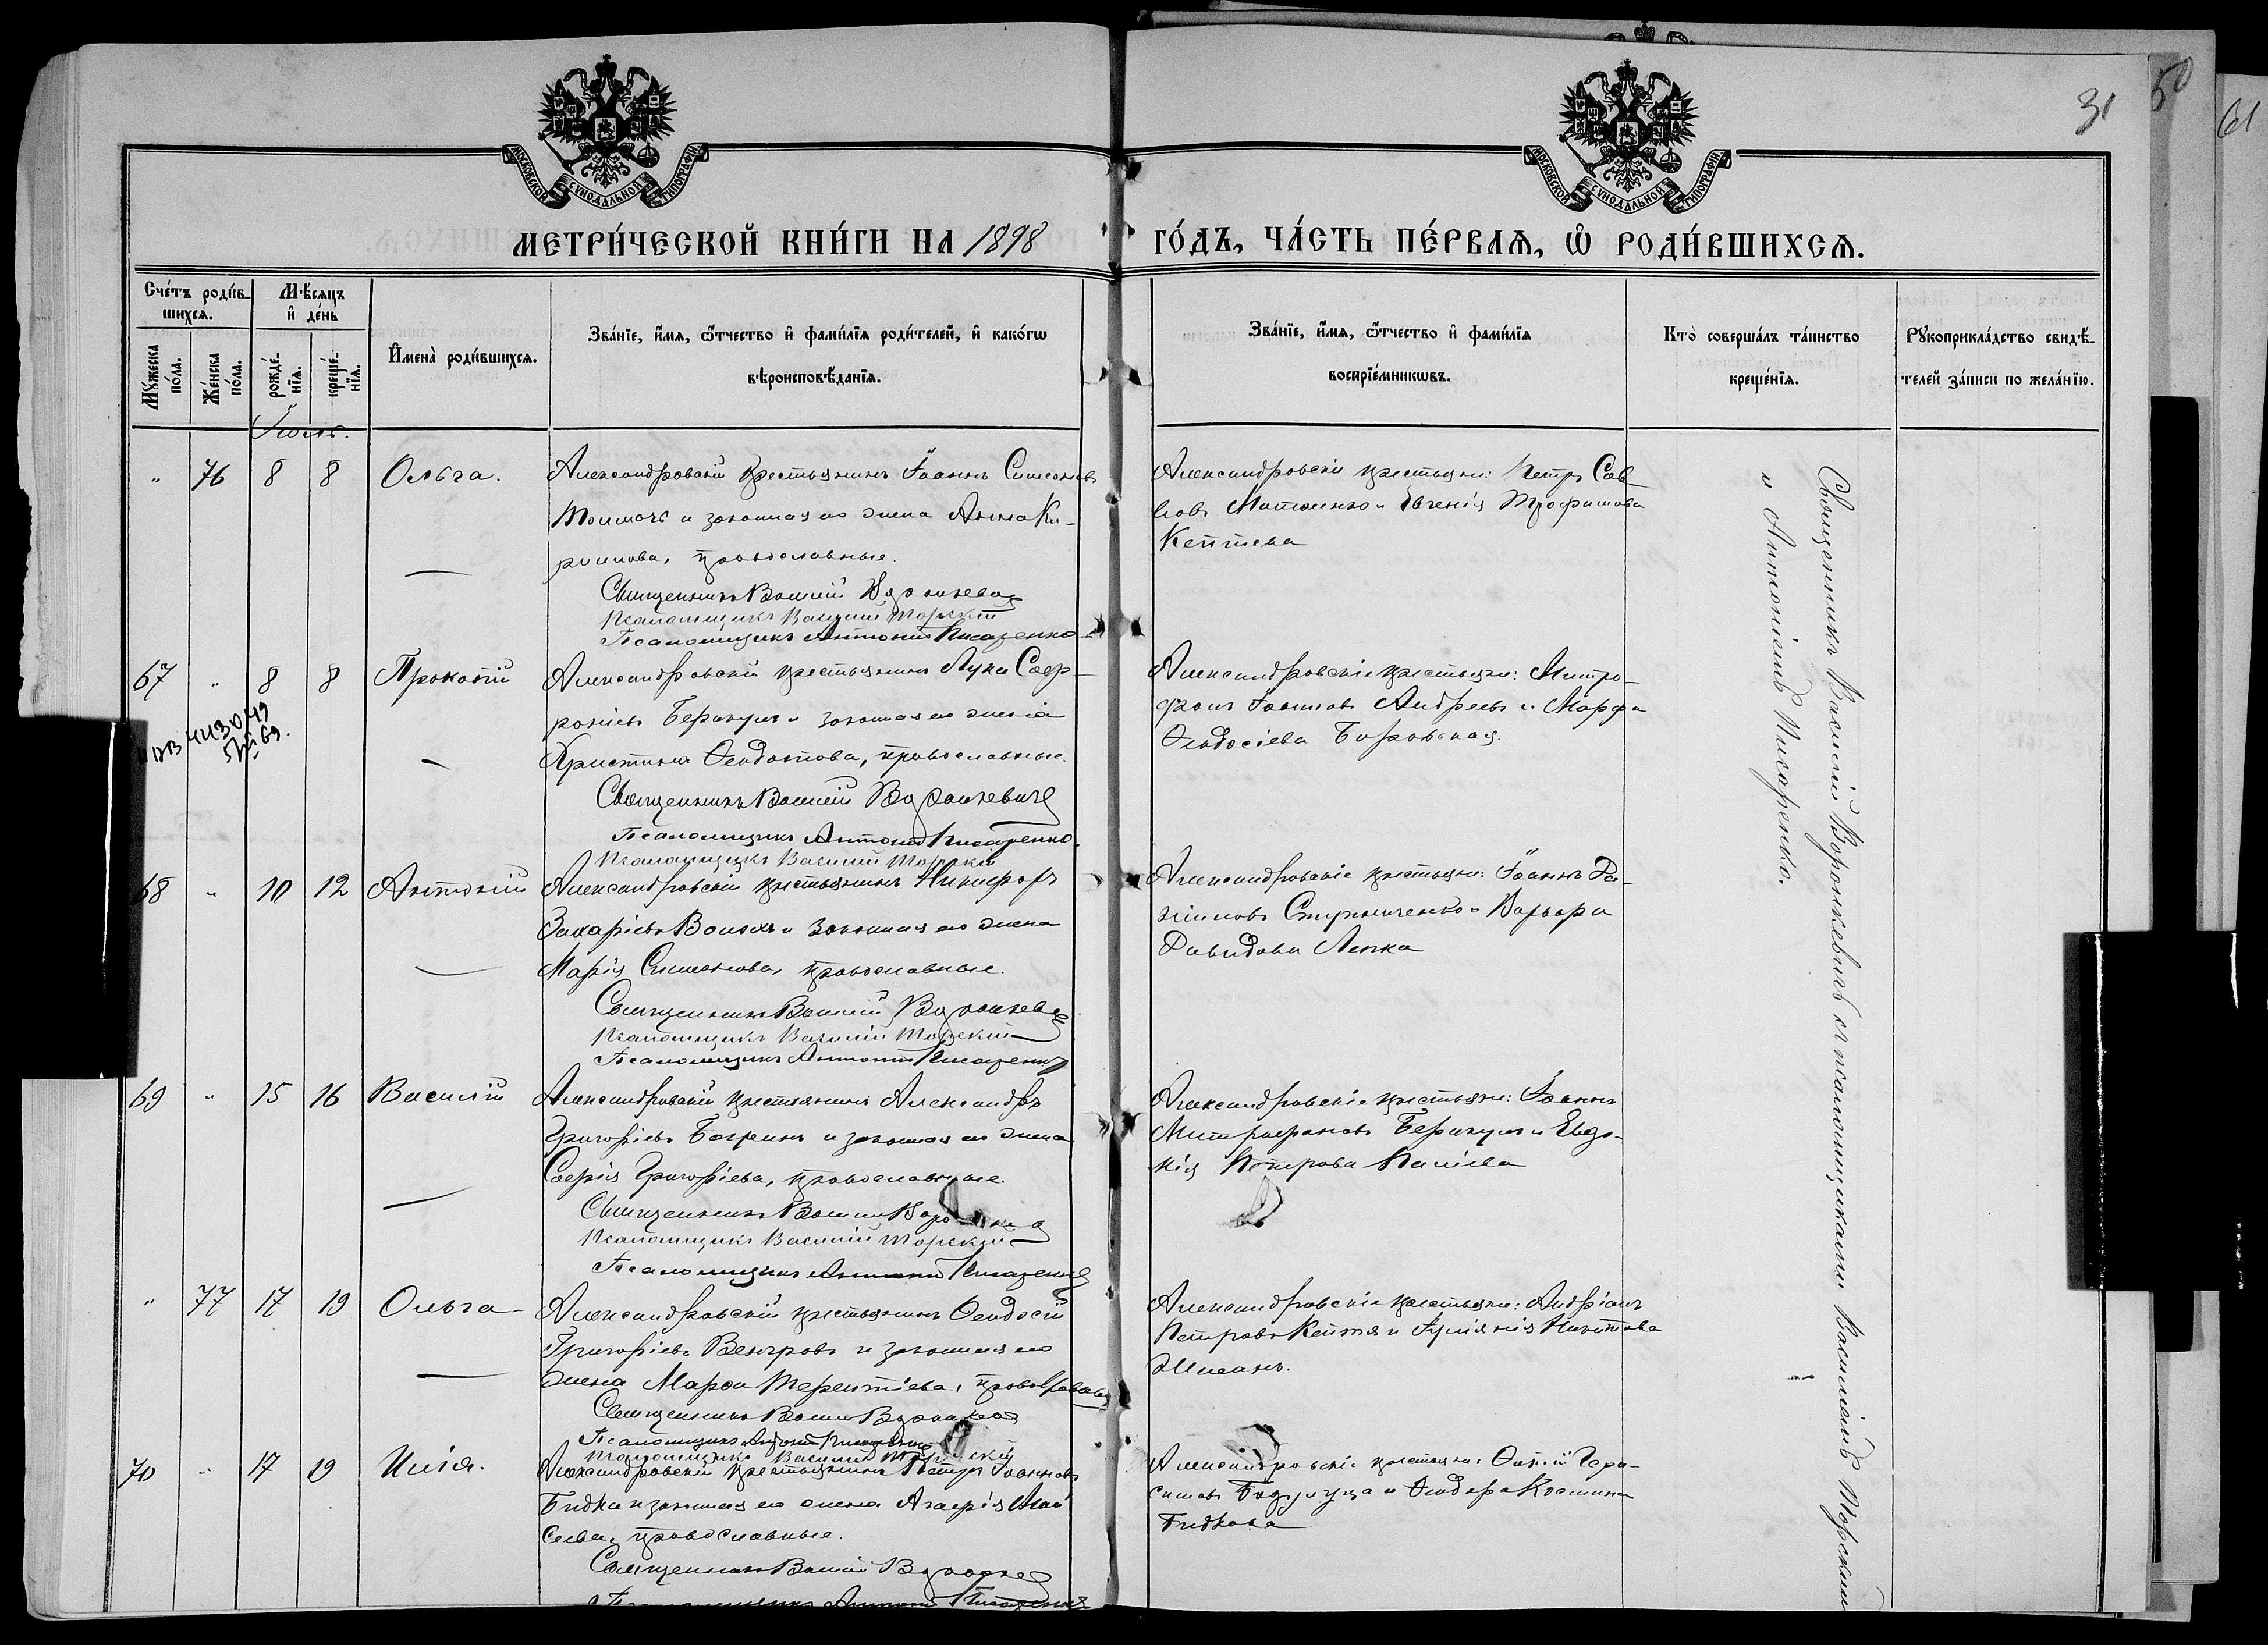 31
50
61
МОСКОВСКОЙ СѴНОДАЛЬНОЙ ТИПОГРАФІИ
МОСКОВСКОЙ СѴНОДАЛЬНОЙ ТИПОГРАФІИ
МЕТРИ́ЧЕСКОЙ КНИ́ГИ НА 1898 ГО́ДЪ, ЧА́СТЬ ПЕ́РВАѦ, Ѡ҆ РОДИ́ВШИХСѦ.
Сче́тъ роди́в-
шихсѧ.
Мꙋ́жеска
по́ла.
Же́нска
по́ла.
Мѣ́сѧцъ
и҆ де́нь
рожде́-
нїѧ.
креще́-
нїѧ.
И҆мена̀ роди́вшихсѧ.
Зва́нїе, и҆́мѧ, ѻ҆́тчество и҆ фами́лїѧ роди́телей, и҆ како́гѡ
вѣроисповѣ́данїѧ.
Зва́нїе, и҆́мѧ, ѻ҆́тчество и҆ фами́лїѧ
воспрїе́мникѡвъ.
Кто̀ соверша́лъ та́инство
креще́нїѧ.
Рꙋкоприкла́дство свидѣ́-
телей за́писи по жела́нїю.
Іюль.
" 76 8 8 Ольга.
Александровскій крестьянинъ Іоаннъ Симеоновъ
и законная его жена Анна Ки-
риллова, православные.
Священникъ Василій Воронкевичъ
Псаломщикъ Василій Торскій
Псаломщикъ Антоній Писаренко
Александровскіе крестьяне: Петръ Сав-
вовъ и Евгенія Трофимова
Кептева
67 " 8 8 Прокопій
Александровскій крестьянинъ Лука Соф-
роніевъ Берикулъ и законная его жена
Христина Феодотова, православные.
Священникъ Василій Воронкевичъ
Псаломщикъ Антоній Писаренко.
Псаломщикъ Василій Торскій
Александровскіе крестьяне: Митро-
фанъ Іоанновъ Андреевъ и Марфа
Феодосіева Боровская.
68 " 10 12 Антоній
Александровскій крестьянинъ Никифоръ
Захаріевъ и законная его жена
Марія Симеонова, православные.
Священникъ Василій Воронкевичъ
Псаломщикъ Василій Торскій
Псаломщикъ Антоній Писаренко
Александровскіе крестьяне: Іоаннъ Да-
ніиловъ и Варвара
Давидова Лепка
69 " 15 16 Василій
Александровскій крестьянинъ Александръ
Григоріевъ Багринъ и законная его жена
Софія Григоріева, православные.
Священникъ Василій
Псаломщикъ Василій Торскій
Псаломщикъ Антоній Писаренко
Александровскіе крестьяне: Іоаннъ
Митрофановъ Берикулъ и Евдо-
кія Петрова Паліева
" 77 17 19 Ольга
Александровскій крестьянинъ Феодосій
Григоріевъ Венгровъ и законная его
жена Марфа Терентіева, православные
Священникъ Василій Воронкевичъ
Псаломщикъ Антоній Писаренко
Псаломщикъ Василій Торскій
Александровскіе крестьяне: Андріанъ
Петровъ Кептя и Никитова
70 " 17 19 Илія.
Александровскій крестьянинъ Петръ Іоанновъ
Гидка и законная его жена Агафія Мои-
сеева, православные.
Священникъ Василій Воронкевичъ
Псаломщикъ Антоній Писаренко
Александровскіе крестьяне: Гера-
симовъ и Феодора Косьмина
Гидкова
Священникъ Василій Воронкевичъ съ псаломщиками Василіемъ Торскимъ
и Антоніемъ Писаренко.